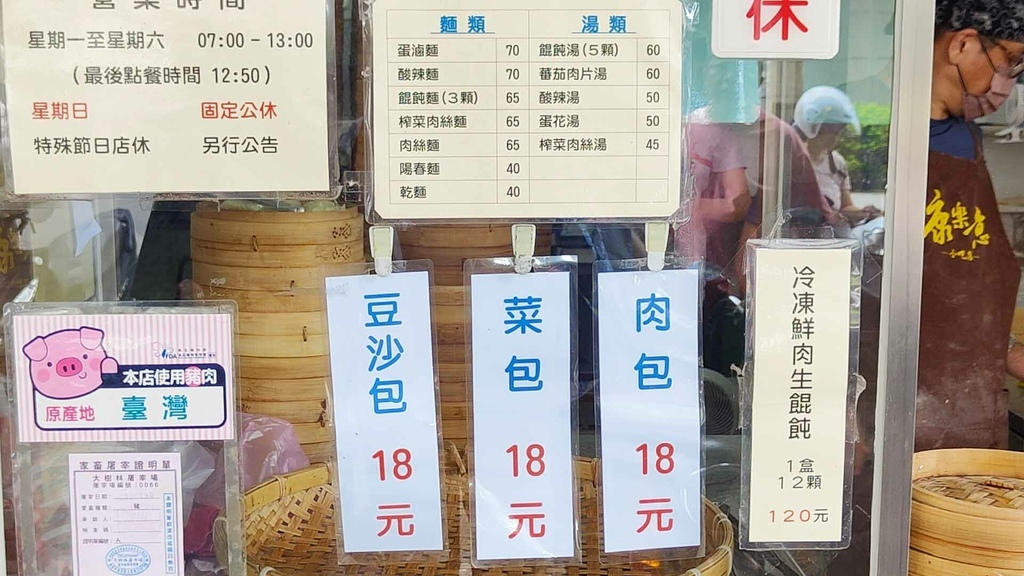 營業時間
星期一至星期六 07:00-13:00
(最後點餐時間 12:50)
星期日 固定公休
特殊節日店休 另行公告
麵類 湯類
蛋滷麵 70 餛飩湯(5顆) 60
酸辣麵 70 蕃茄肉片湯 60
餛飩麵(3顆) 65 酸辣湯 50
榨菜肉絲麵 65 蛋花湯 50
肉絲麵 65 榨菜肉絲湯 45
陽春麵 40
乾麵 40
休
豆沙包
18
元
菜包
18
元
肉包
18
元
冷凍鮮肉生餛飩
1盒
12顆
120元
本店使用豬肉
原產地 臺灣
家畜屠宰證明單
大樹林屠宰場
屠宰場編號:0066
屠宰日期:
家畜種類: 豬